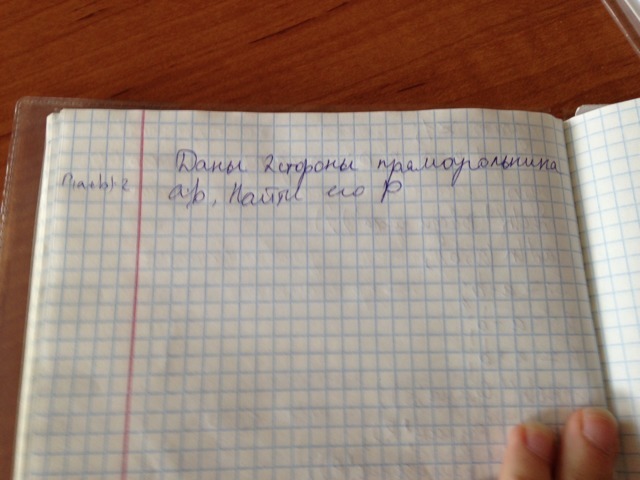 Даны 2 стороны прямоугольника
a;b, Найти его P
(a+b)·2